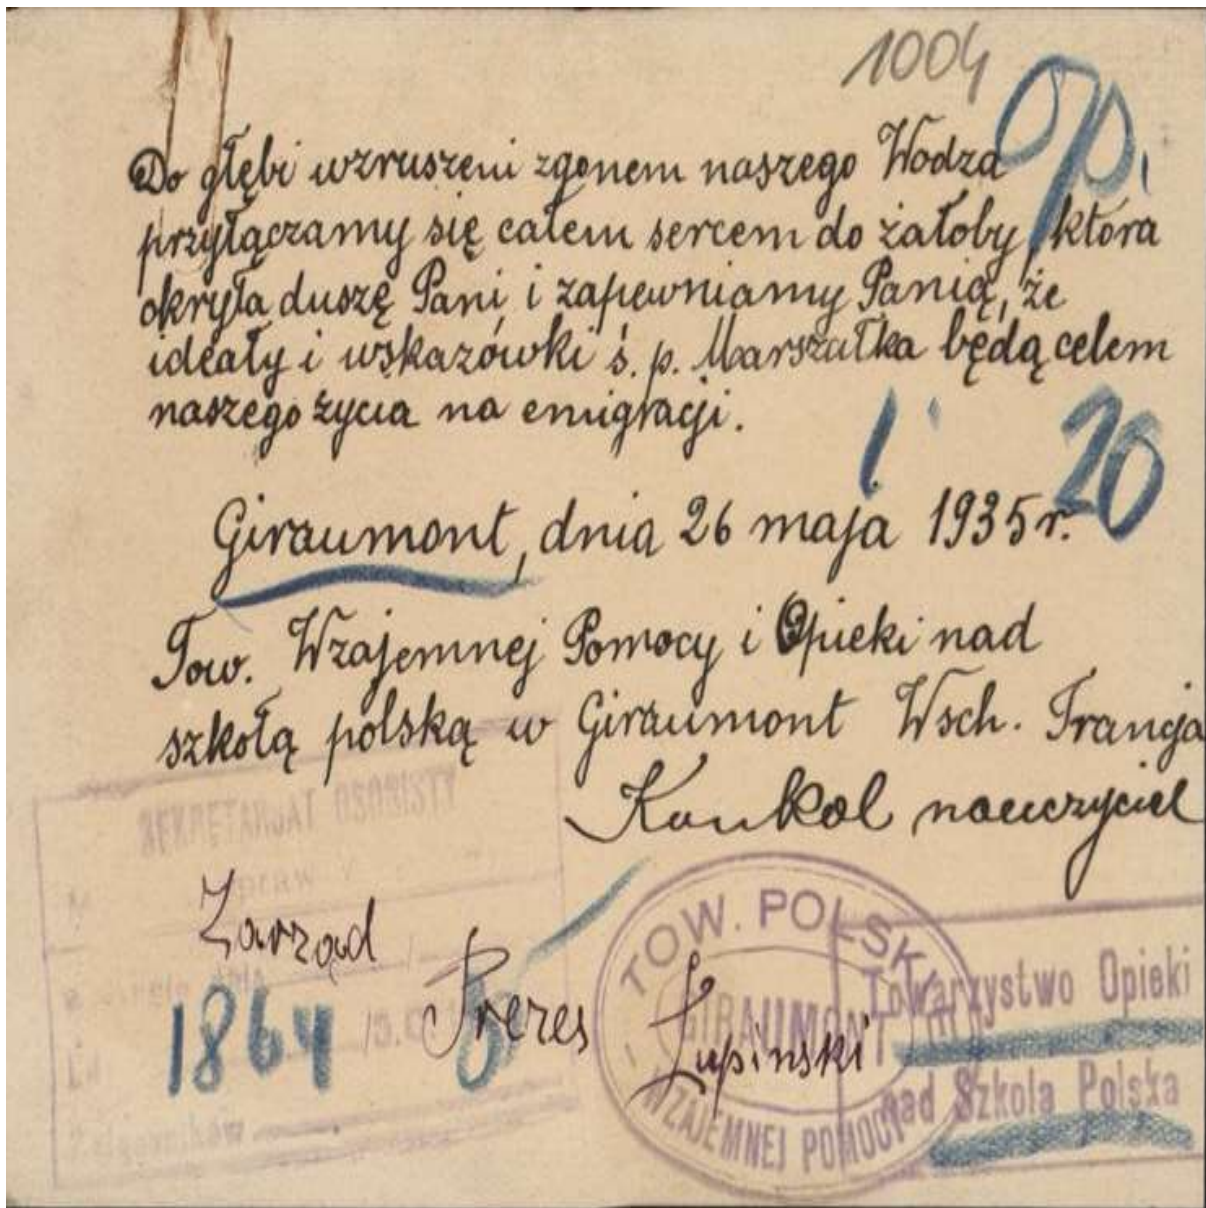 1004
Op.
Do głębi wzruszeni zgonem naszego Wodza
przyłączamy się całem sercem do żałoby, która
okryła duszę Pani, i zapewniamy Panią, że
ideały i wskazówki ś. p. Marszałka będą celem
naszego życia na emigracji.
20
Giraumont, dnia 26 maja 1935 r.
Tow. Wzajemnej Pomocy i Opieki nad
szkołą polską w Giraumont Wsch. Francja
Kunkol nauczyciel
SEKRETARJAT OSOBISTY
Zarząd
Prezes Łupinski
1864
TOW. POLSKIE
GIRAUMONT
WZAJEMNEJ POMOCY
Towarzystwo Opieki
nad Szkola Polska